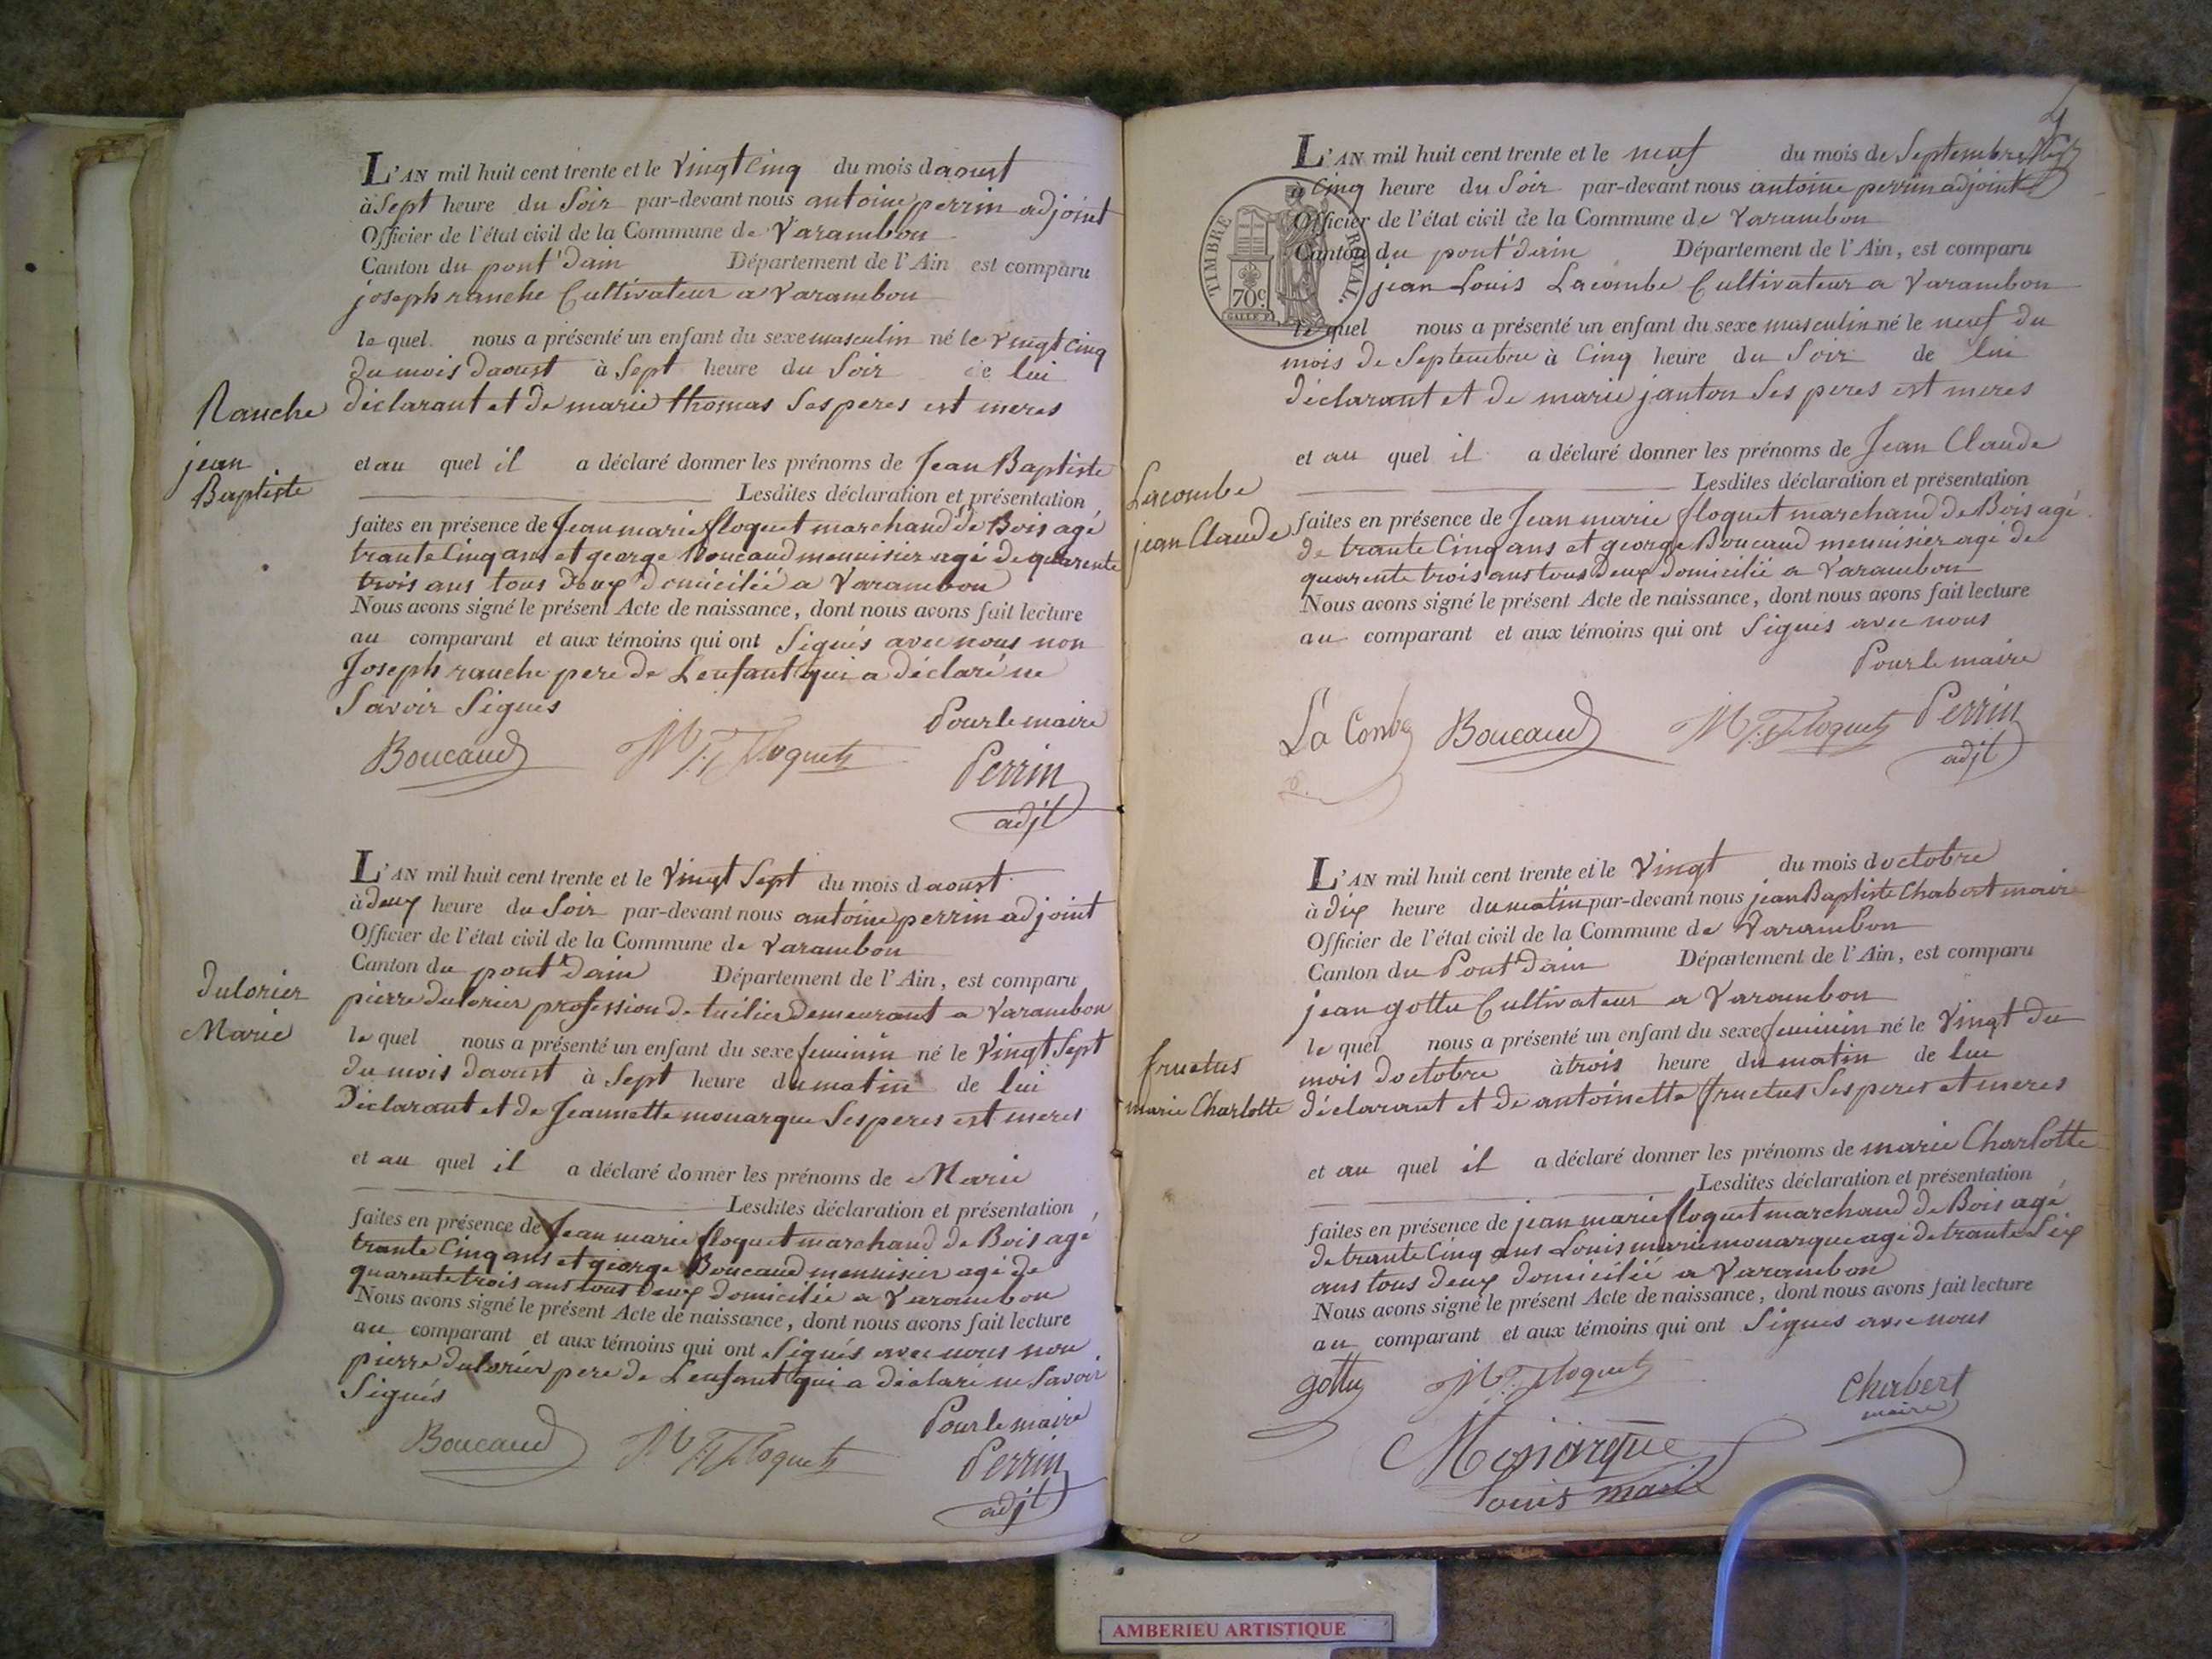 L'AN mil huit cent trente et le Vingt Cinq du mois daoust
à Sept heure du Soir par-devant nous antoine perrin adjoint
Officier de l'état civil de la Commune de Varambon
Canton du pont'dain Département de l'Ain est comparu
joseph ranche Cultivateur a Varambon
le quel nous a présenté un enfant du sexe masculin né le vingt cinq
du mois daoust à Sept heure du Soir de lui
déclarant et de marie thomas Ses peres est meres
Ranche
jean
Baptiste
et au quel il a déclaré donner les prénoms de Jean Baptiste
Lesdites déclaration et présentation
faites en présence de Jean marie floquet marchand de Bois agé
trante Cinq ans et george Boucaud menuisier agé de quarente
trois ans tous deux domicilié a Varambon
Nous avons signé le présent Acte de naissance, dont nous avons fait lecture
au comparant et aux témoins qui ont Signés avec nous non
Joseph ranche pere de Lenfant qui a déclaré ne
Savoir Signés
Pour le maire
Boucaud Floquet Perrin
adjt
L'AN mil huit cent trente et le Vingt Sept du mois daoust
à deux heure du Soir par-devant nous antoine perrin adjoint
Officier de l'état civil de la Commune de Varambon
Canton du pont'dain Département de l'Ain, est comparu
pierre dulorier profession de tuilier demeurant a Varambon
dulorier
Marie
le quel nous a présenté un enfant du sexe feminin né le Vingt Sept
du mois daoust à Sept heure du matin de lui
Déclarant et de Jeannette monarque Ses peres est meres
et au quel il a déclaré donner les prénoms de Marie
Lesdites déclaration et présentation
faites en présence de Jean marie floquet marchand de Bois agé
trante Cinq ans et george Boucaud menuisier agé de
quarente trois ans tous deux domicilié a Varambon
Nous avons signé le présent Acte de naissance, dont nous avons fait lecture
au comparant et aux témoins qui ont Signés avec nous non
pierre dulorier pere de Lenfant qui a déclaré ne Savoir
Signés
Pour le maire
Boucaud Floquet Perrin
adjt
L'AN mil huit cent trente et le neuf du mois de Septembre
a Cinq heure du Soir par-devant nous antoine perrin adjoint
Officier de l'état civil de la Commune de Varambon
Canton du pont'dain Département de l'Ain, est comparu
jean Louis Lacombe Cultivateur a Varambon
TIMBRE ROYAL.
70c.
le quel nous a présenté un enfant du sexe masculin né le neuf du
mois de Septembre à Cinq heure du Soir de lui
déclarant et de marie janton Ses peres est meres
et au quel il a déclaré donner les prénoms de Jean Claude
Lacombe
jean Claude
Lesdites déclaration et présentation
faites en présence de Jean marie floquet marchand de Bois agé
de trante Cinq ans et george Boucaud menuisier agé de
quarente trois ans tous deux domicilié a Varambon
Nous avons signé le présent Acte de naissance, dont nous avons fait lecture
au comparant et aux témoins qui ont Signés avec nous
Pour le maire
La Combe Boucaud Floquet Perrin
adjt
L'AN mil huit cent trente et le Vingt du mois doctobre
à dix heure du matin par-devant nous jean Baptiste Chabert maire
Officier de l'état civil de la Commune de Varambon
Canton du Pont'dain Département de l'Ain, est comparu
jean gottu Cultivateur a Varambon
le quel nous a présenté un enfant du sexe feminin né le Vingt du
mois doctobre à trois heure du matin de lui
déclarant et de antoinette fructus Ses peres et meres
fructus
marie Charlotte
et au quel il a déclaré donner les prénoms de marie Charlotte
Lesdites déclaration et présentation
faites en présence de jean marie floquet marchand de Bois agé
de trante Cinq ans Louis marie monarque agé de trante Six
ans tous deux domicilié a Varambon
Nous avons signé le présent Acte de naissance, dont nous avons fait lecture
au comparant et aux témoins qui ont Signés avec nous
gottu Floquet Chabert
maire
Monarque
Louis marie
AMBERIEU ARTISTIQUE